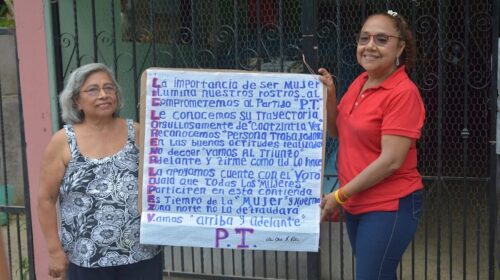 La importancia de ser Mujer
ilumina Nuestros rostros al
comprometernos al Partido "P.T.
Le conocemos su Trayectoria
orgullosamente de Coatzintla Ver.
Reconocemos "Persona Trabajadora
En las buenas actitudes realizado
No decaer "Vamos al Triunfo"
Adelante y firme como Ud. Lo hace
La apoyamos cuente con el Voto
Ojala que Todas Las "Mujeres"
Participen en esta contienda
Es Tiempo de La "Mujer" y
Zona norte No La defraudara
Vamos "arriba y adelante"
P.T.